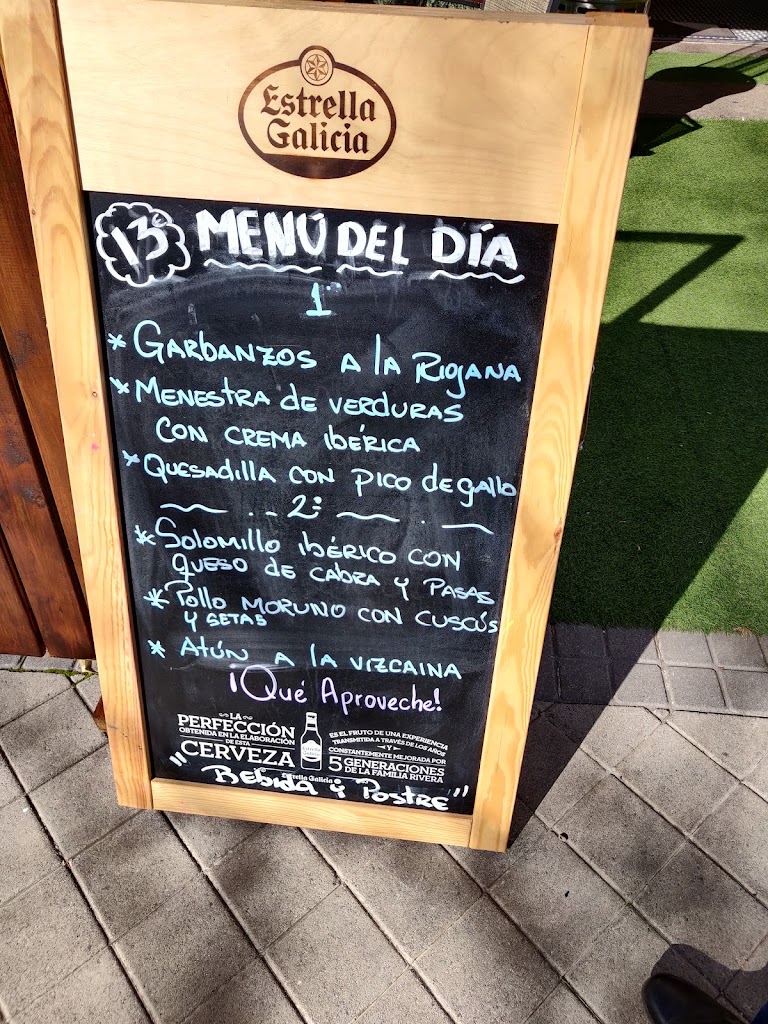 Estrella
Galicia
13€ MENÚ DEL DÍA
1º
* GARBANZOS A LA RIOJANA
* MENESTRA DE VERDURAS
CON CREMA IBÉRICA
* QUESADILLA CON PICO DE GALLO
2º
* SOLOMILLO IBÉRICO CON
QUESO DE CABRA Y PASAS
* POLLO MORUNO CON CUSCÚS
Y SETAS
* ATÚN A LA VIZCAINA
¡Qué Aproveche!
LA
PERFECCIÓN
OBTENIDA EN LA ELABORACIÓN
DE ESTA
CERVEZA
ES EL FRUTO DE UNA EXPERIENCIA
TRANSMITIDA A TRAVÉS DE LOS AÑOS
Y
CONSTANTEMENTE MEJORADA POR
5 GENERACIONES
DE LA FAMILIA RIVERA
Estrella Galicia
"BEBIDA Y POSTRE"